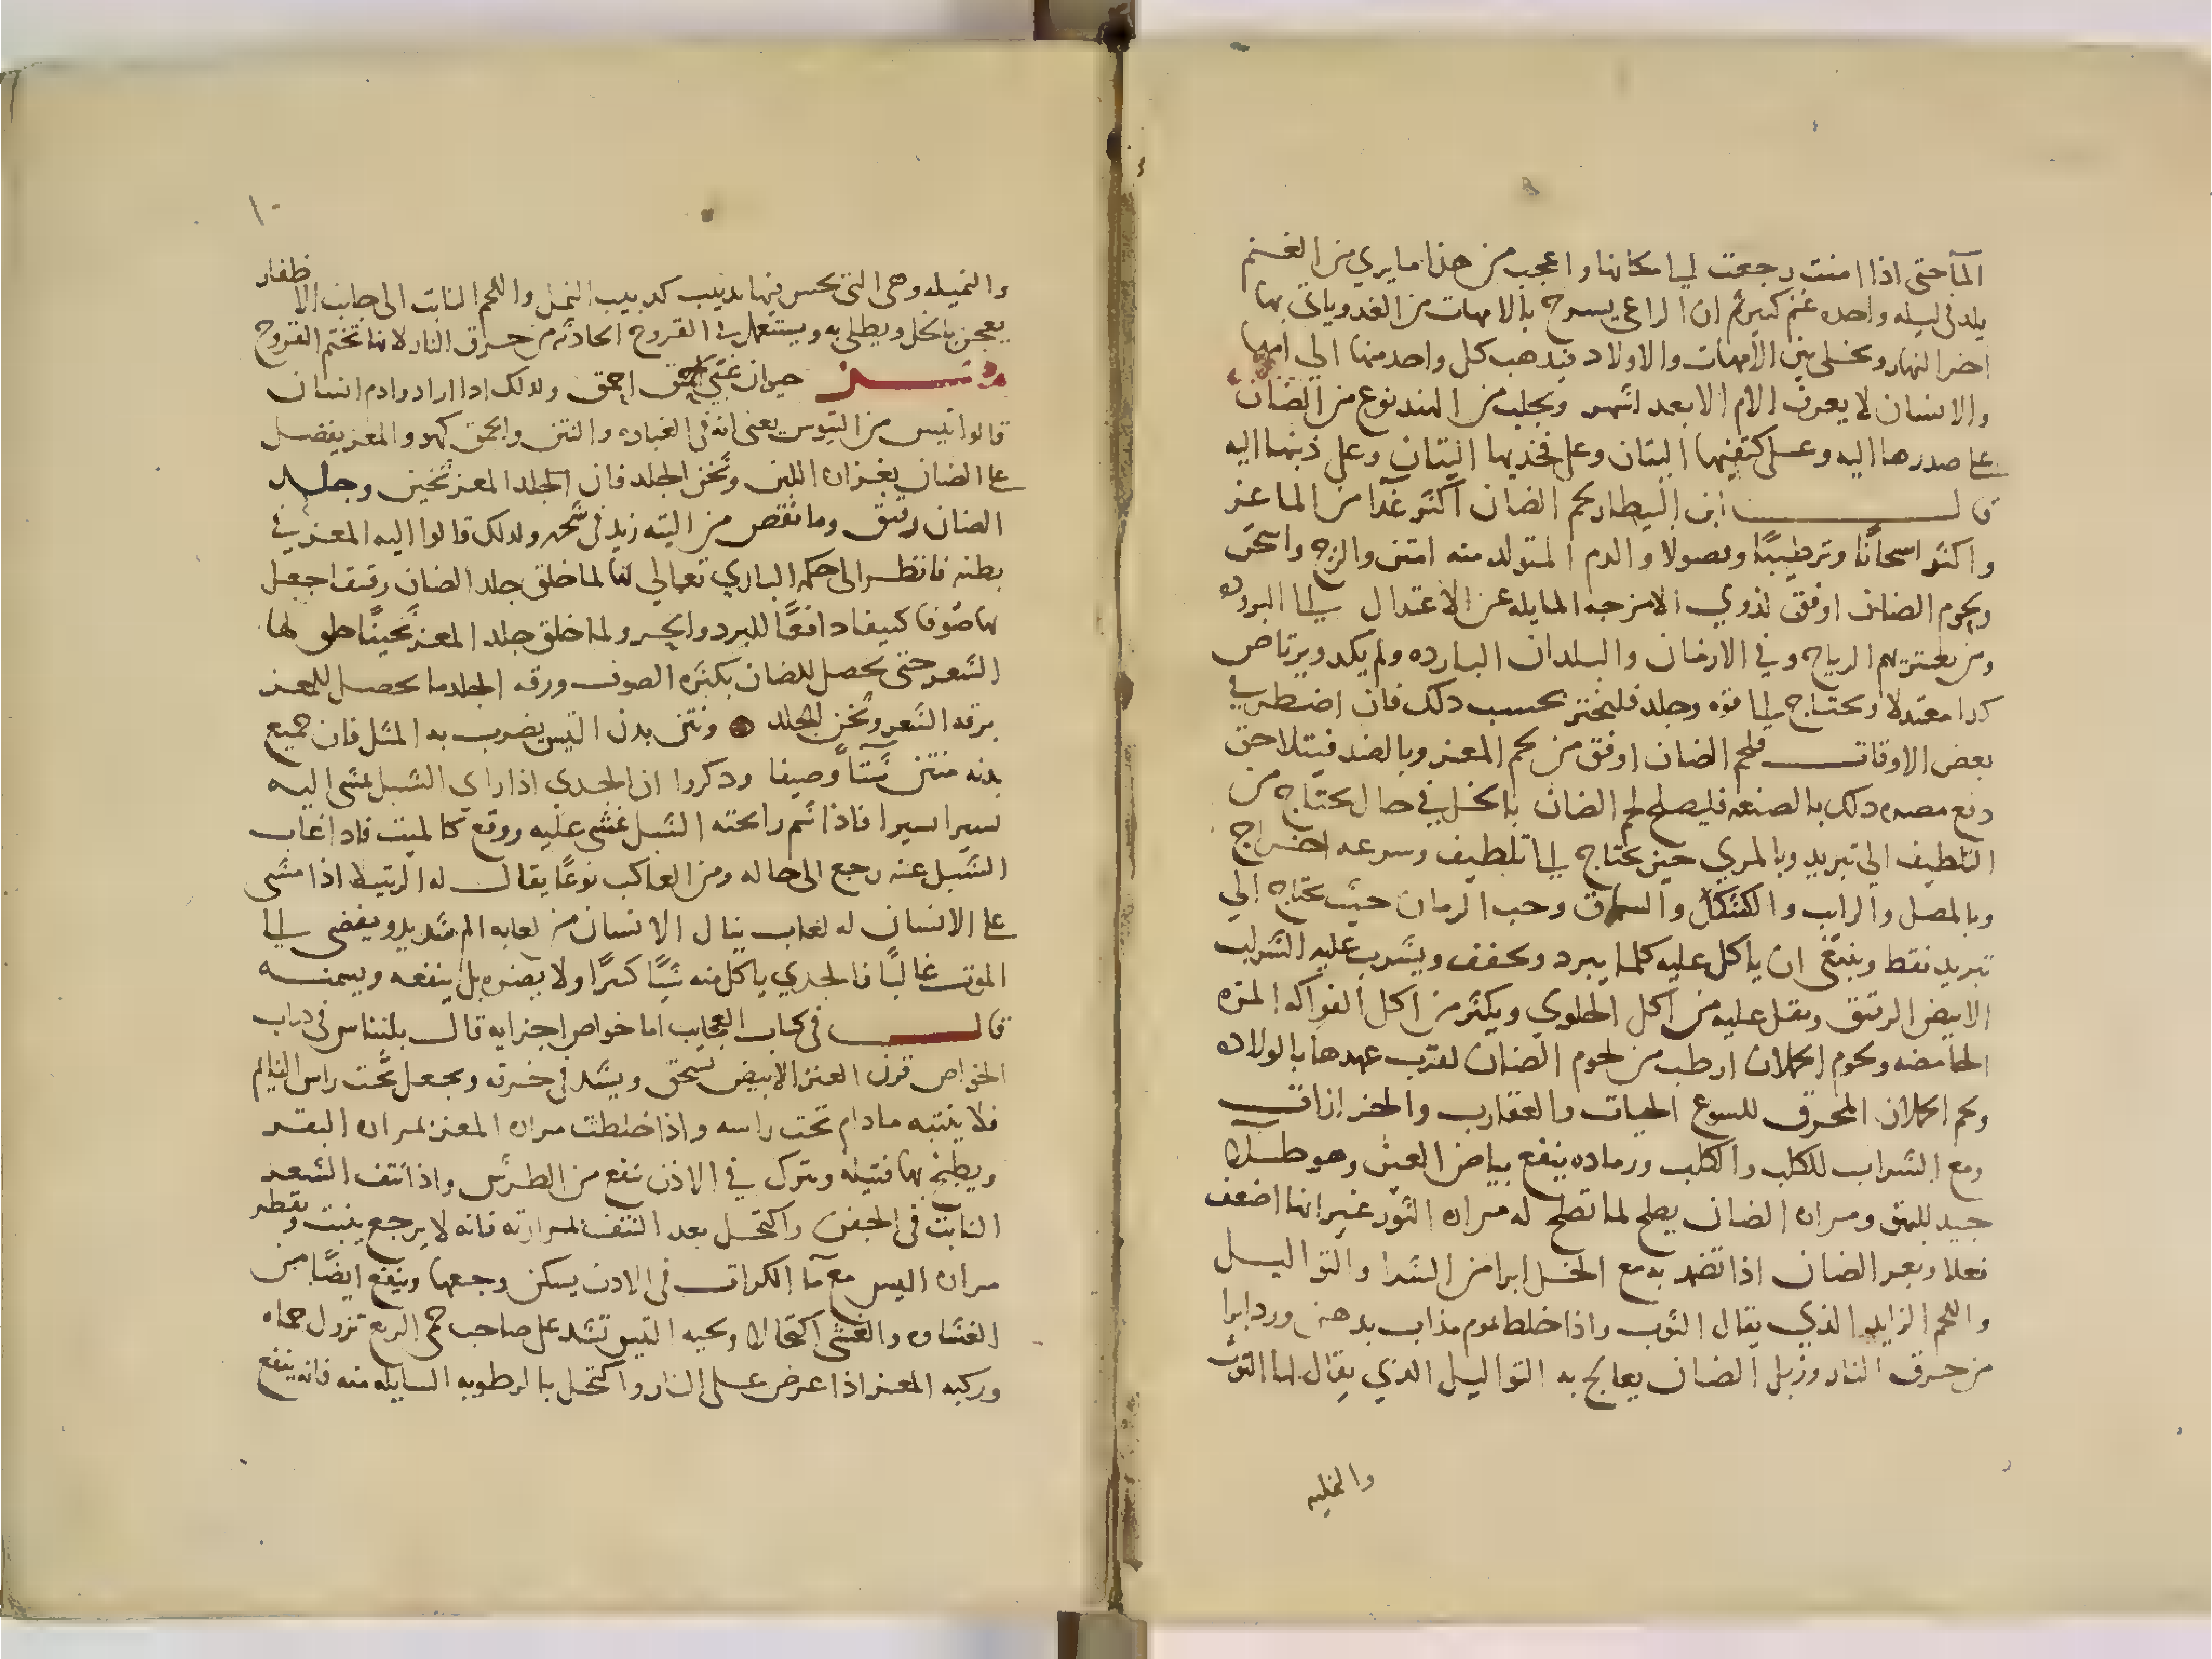 المآ حتى اذا امنت رجعت الى مكانها واعجب من هذا ما يري من الغنم
يلد في ليله واحده غنم كثير ثم ان الراعي يسرح بالامهات من الغد وياتي بها
اخر النهار ويخلى بين الامهات والاولاد فيدهب كل واحد منها الي امها
والانسان لا يعرف الام الا بعد اشهر ويجلب من الهند نوع من الضان
على صدرها اليه وعلى كتفيها اليتان وعلى فخديها اليتان وعلى ذنبها اليه
قال ابن البيطار لحم الضان اكثر غدآ من الماعز
واكثر اسخانًا وترطيبًا وفصولا والدم المتولد منه امتن والزج واسخن
ولحوم الضان اوفق لذوي الامزجه المايله عن الاعتدال الى البروده
ومن يعتريهم الرياح وفي الازمان والبلدان البارده ولم يكد ويرتاض
كدا معتدلا ويحتاج الى قوه وجلد فليختر بحسب دلك فان اضطر في
بعض الاوقات فلحم الضان اوفق من لحم المعز وبالضد فيتلاحق
دفع مضره دلك بالصنعه فليصلح لحم الضان بالخل في حال يحتاج من
التلطيف الي تبريد وبالمري حين يحتاج الى تلطيف وسرعه اخراج
وبالمصل والراب والكشك والسماق وحب الرمان حيث يحتاج الي
تبريد فقط وينبغي ان ياكل عليه كلما يبرد ويجفف ويشرب عليه الشراب
الابيض الرقيق ويقل عليه من اكل الحلوي ويكثر من اكل الفواكه المزه
الحامضه ولحوم الحملان ارطب من لحوم الضان لقرب عهدها بالولاده
ولحم الحملان المحرق للسوع الحيات والعقارب والجرارات
ومع الشراب للكلب والكلب ورماده ينفع بياض العين وهو طلاء
جيد للبهق ومراره الضان يصلح لما تصلح له مراره الثور غير انها اضعف
فعلا وبعر الضان اذا تضمد به مع الخل ابرا من الشرا والتواليل
واللحم الزايد الذي يقال التوت واذا خلط بموم مذاب بدهن ورد ابرا
من حرق النار وزبل الضان يعالج به التواليل الذي يقال لها التوت
والنمليه
١٠
والنميله وهى التى يحس فيها بدبيب كدبيب النمل واللحم النابت الى جانب الاظفار
يعجن بالخل ويطلى به ويستعمل في القروح الحادثه من حرق النار لانها تختم القروح
حيوان غبي احمق ولدلك ادا ارادوا دم انسان
قالوا تيس من التيوس يعنى انه فى الغباوه والنتن والحمق كهو والمعز يفضل
على الضان بغزاره اللبن وثخن الجلد فان الجلد المعز ثخين وجلد
الضان رقيق وما نقص من اليته زيد فى شحمه ولدلك قالوا اليه المعز في
بطنه فانظر الى حكمه الباري تعالي لما خلق جلد الضان رقيقا جعل
لها صوفا كثيفا دافعًا للبرد والحر ولما خلق جلد المعز ثخينًا طول لها
الشعر حتى يحصل للضان بكثره الصوف ورقه الجلد ما يحصل للمعز
برقه الشعر وثخن الجلد ونتن بدن التيس يضرب به المثل فان جميع
بدنه منتن شتآ وصيفا ودكروا ان الجدي اذا راي الشبل يمشى اليه
سيرا سيرا فاذا شم رايحته الشبل غشى عليه ووقع كالميت فادا غاب
الشبل عنه رجع الى حاله ومن العناكب نوعًا يقال له الرتيلا اذا مشى
على الانسان له لعاب ينال الانسان من لعابه الم شديد ويفضى الى
الموت غالبًا فالجدي ياكل منه شيًا كثيرًا ولا يضره بل ينفعه ويسمنه
قال فى كتاب العجايب اما خواص اجزايه قال بليناس فى كتاب
الخواص قرن العنز الابيض يسحق ويشد فى خرقه ويجعل تحت راس النايم
فلا ينتبه مادام تحت راسه واذا خلطت مراره المعز بمراره البقر
ويطلخ بها فتيله وتترك في الاذن نفع من الطرش واذا نتف الشعر
النابت فى الجفن واكتحل بعد النتف بمرارته فانه لا يرجع ينبت وتقطر
مراره التيس مع مآ الكراث فى الادن يسكن وجعها وينفع ايضًا من
الغشاوه والعشى اكتحالا ولحيه التيس تشد على صاحب حمى الربع تزول حماه
وركبه المعز اذا عرض على النار واكتحل بالرطوبه السايله منه فانه ينفع